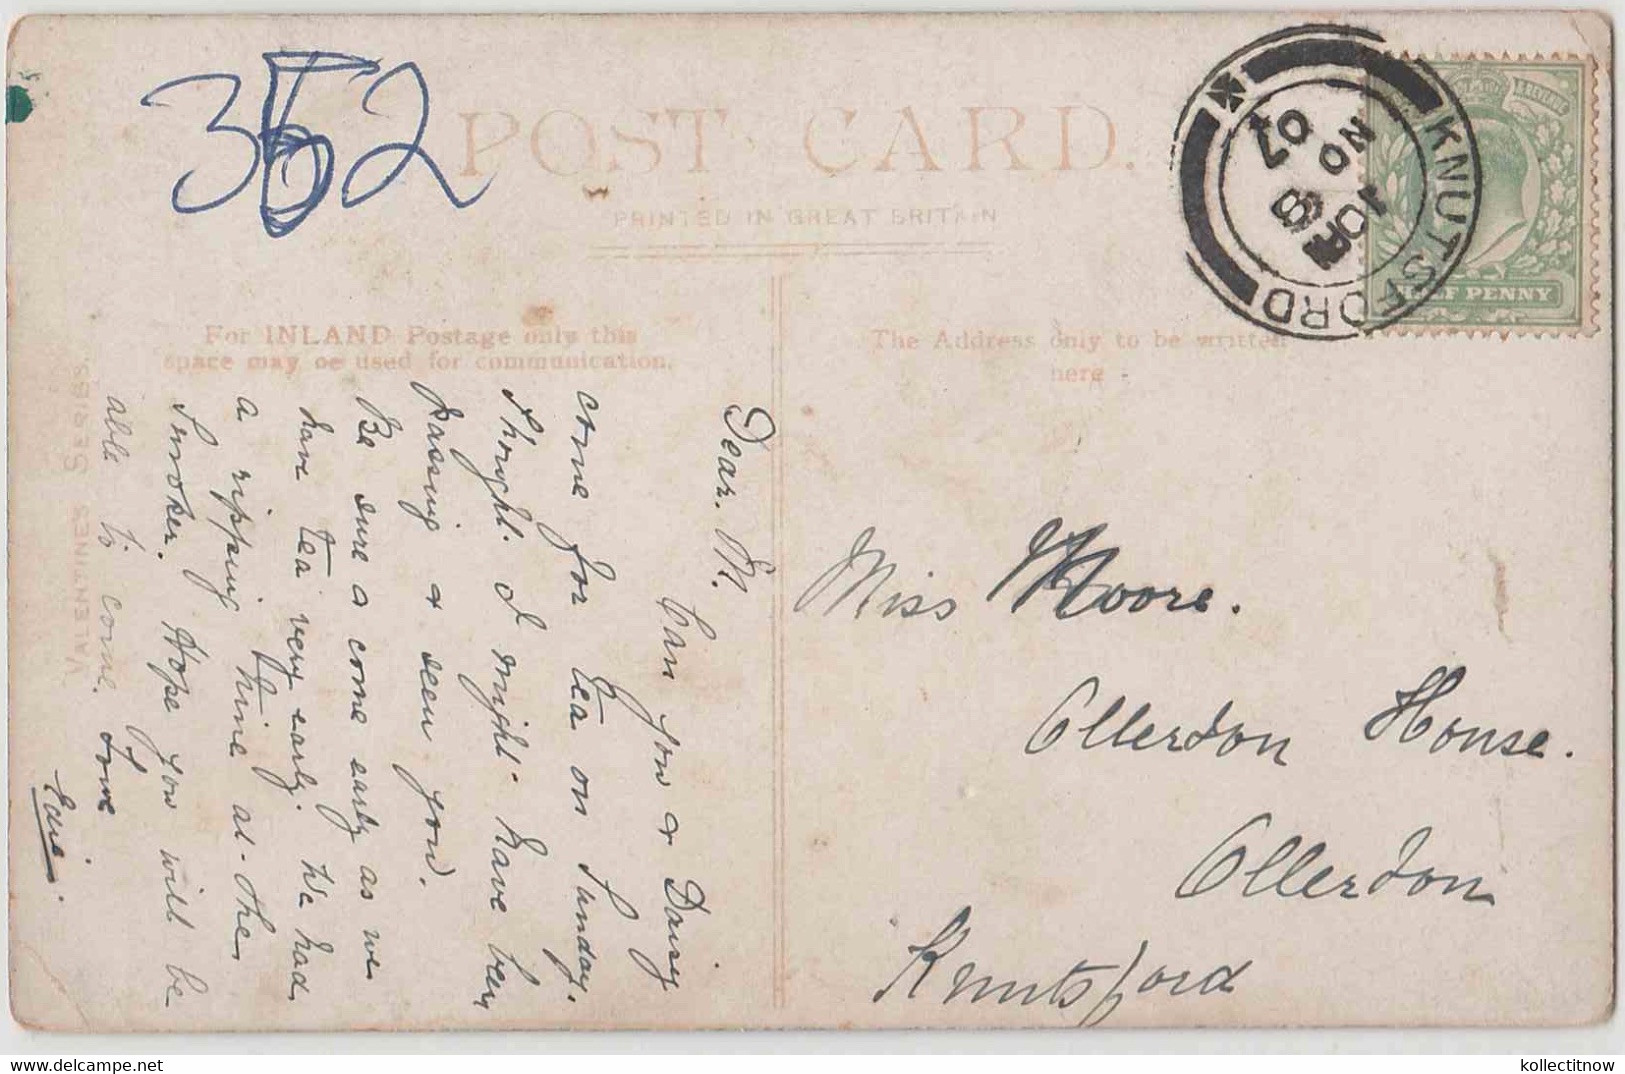 352
POST CARD.
PRINTED IN GREAT BRITAIN
For INLAND Postage only this
space may be used for communication.
The Address only to be written
here
VALENTINES SERIES.
KNUTSFORD
NO 8
07
HALF PENNY
Dear. M.
Can you & Daisy
come for tea on Sunday.
Thought. I might have been
passing & seen you.
Be sure & come early as we
have tea very early. We had
a ripping time at the
Smoker. Hope you will be
able to come. Love
Miss Moore.
Ollerton House.
Ollerton
Knutsford
kollectitnow